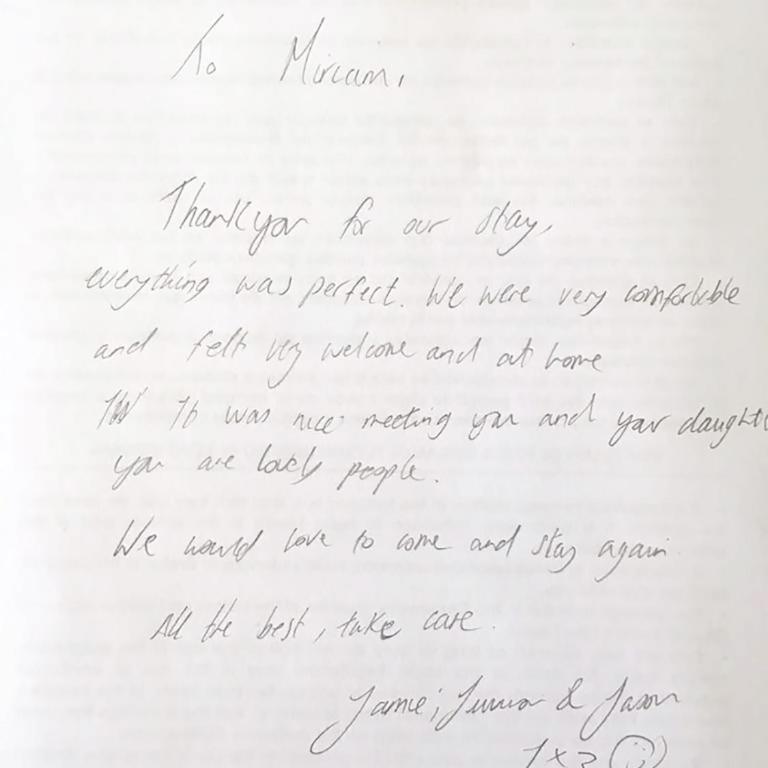 To Miriam,
Thank you for our stay,
everything was perfect. We were very comfortable
and felt very welcome and at home
It was nice meeting you and your daught
you are lovely people.
We would love to come and stay again
All the best, take care.
Jamie, Junior & Jason